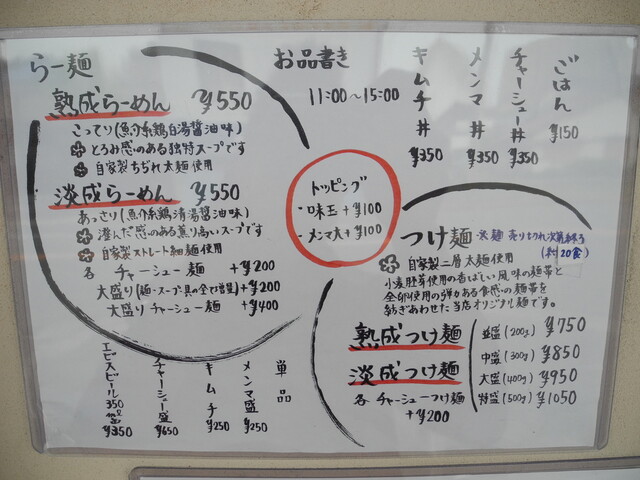 お品書き
11:00〜15:00
らー麺
熟成らーめん ¥550
こってり(魚介系鶏白湯醤油味)
とろみ感のある独特スープです
自家製ちぢれ太麺使用
淡成らーめん ¥550
あっさり(魚介系鶏清湯醤油味)
澄んだ感のある薫り高いスープです
自家製ストレート細麺使用
各 チャーシュー麺 +¥200
大盛り(麺・スープ・具の全て増量)+¥200
大盛りチャーシュー麺 +¥400
トッピング
・味玉+¥100
・メンマ大+¥100
ごはん ¥150
チャーシュー丼 ¥350
メンマ丼 ¥350
キムチ丼 ¥350
つけ麺 ・太麺売りきれ次第終了
(約20食)
自家製二層太麺使用
小麦胚芽使用の香ばしい風味の麺帯と
全卵使用の弾力ある食感の麺帯を
紡ぎあわせた当店オリジナル麺です。
熟成つけ麺
淡成つけ麺
各 チャーシューつけ麺
+¥200
並盛(200g) ¥750
中盛(300g) ¥850
大盛(400g) ¥950
特盛(500g) ¥1050
単品
メンマ盛 ¥250
キムチ ¥250
チャーシュー盛 ¥650
エビスビール350ml缶 ¥350